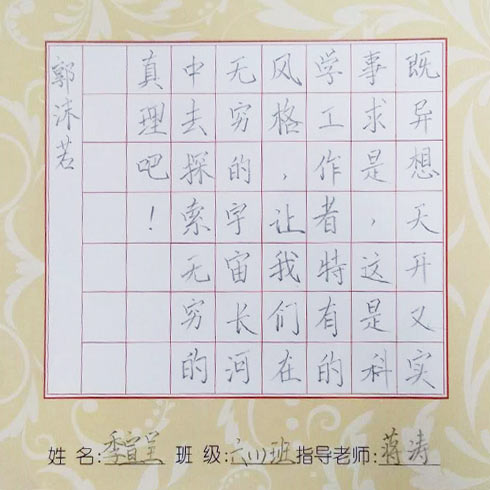 既异想天开又实
事求是，这是科
学工作者特有的
风格，让我们在
无穷的宇宙长河
中去探索无穷的
真理吧！
郭沫若
姓名:季宣呈 班级:六(1)班 指导老师:蒋涛